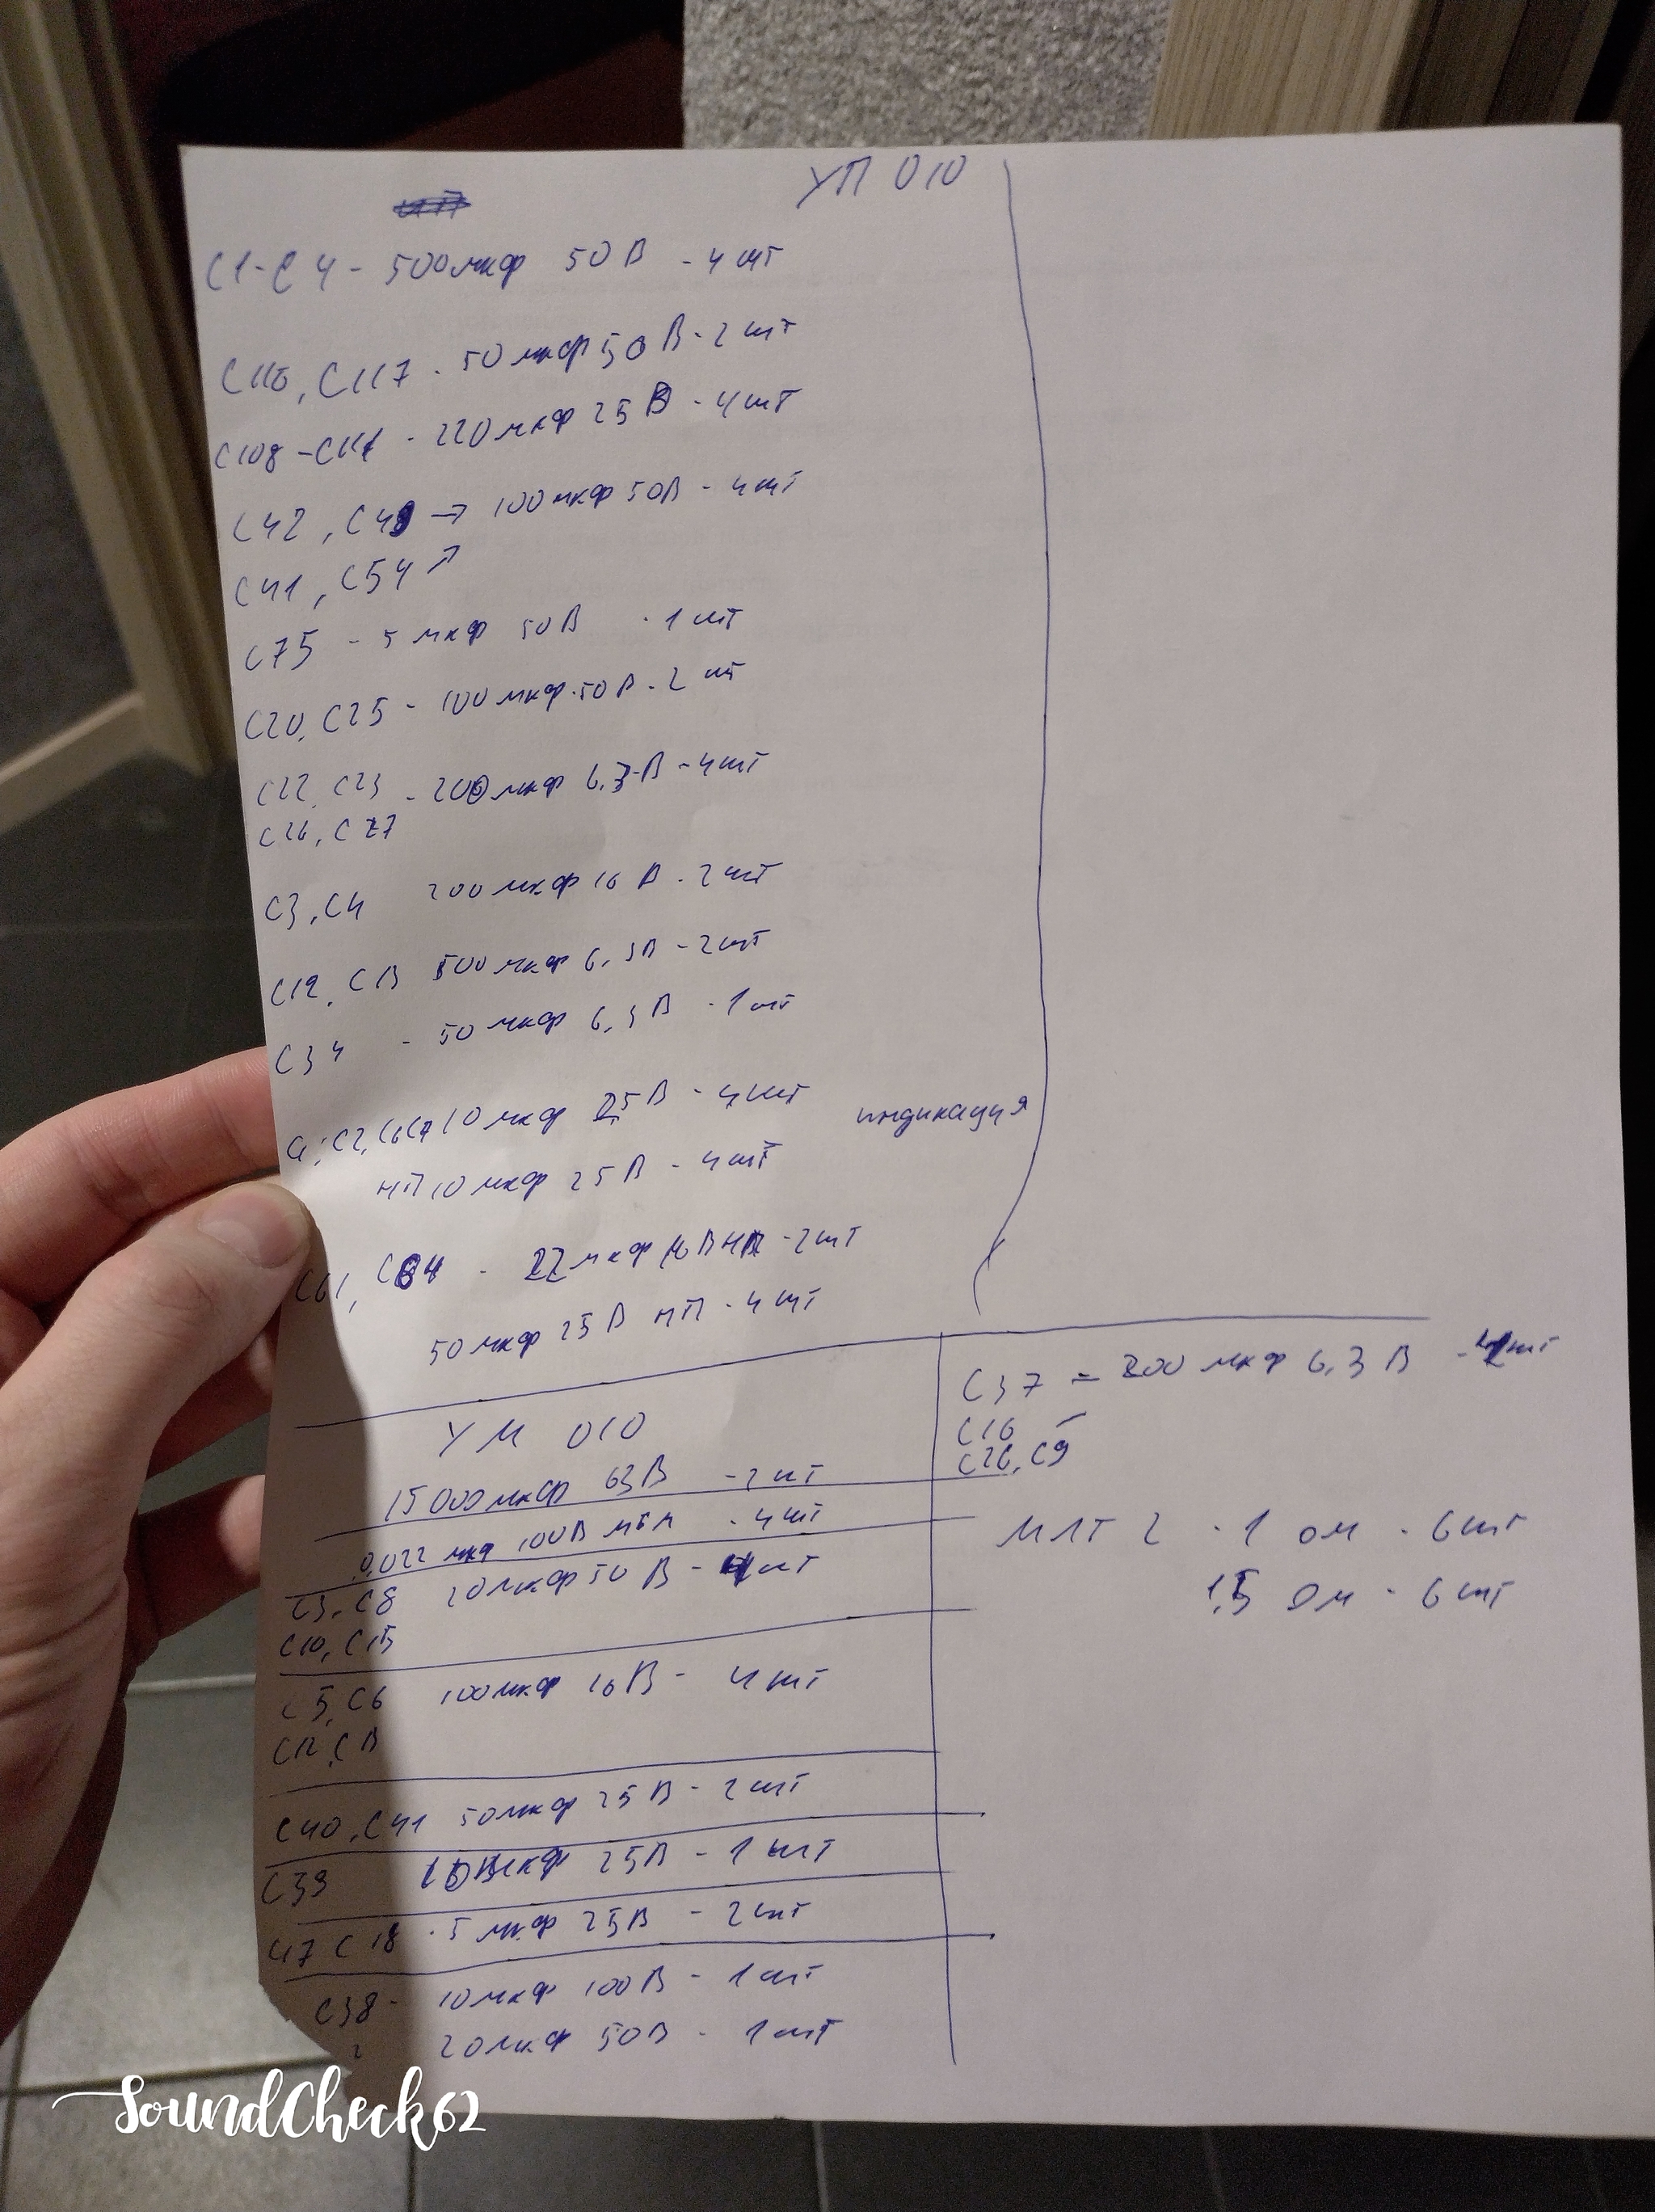 УП 010
С1-С4 - 500мкф 50В - 4 шт
С116, С117 - 50 мкф 50В - 2 шт
С108-С111 - 220мкф 25В - 4шт
С42, С49 → 100мкф 50В - 4шт
С41, С54 ↗
С75 - 5 мкф 50В - 1 шт
С20, С25 - 100 мкф 50В - 2 шт
С22, С23 - 200мкф 6,3 В - 4шт
С26, С27
С3, С4 200 мкф 16 В - 2шт
С12, С13 500 мкф 6,3В - 2шт
С34 - 50 мкф 6,3В - 1шт
С1, С2, С6 С7 10 мкф 25В - 4шт индикация
НП 10 мкф 25В - 4шт
С61, С64 - 22мкф 16В НП - 2шт
50 мкф 25В НП - 4 шт
УМ 010
15000мкф 63В - 2 шт
0,022 мкф 100В МБМ - 4шт
С3, С8 20мкф 50В - 4шт
С10, С15
С5, С6 100мкф 16В - 4 шт
С12, С13
С40, С41 50мкф 25В - 2шт
С39 мкф 25В - 1 шт
С17 С18 - 5 мкф 25В - 2шт
С38 - 10мкф 100В - 1 шт
20мкф 50В - 1шт
С37 = 200 мкф 6,3В - шт
С16
С26, С9
МЛТ 2 - 1 ом - 6шт
1,5 Ом - 6шт
SoundCheck62